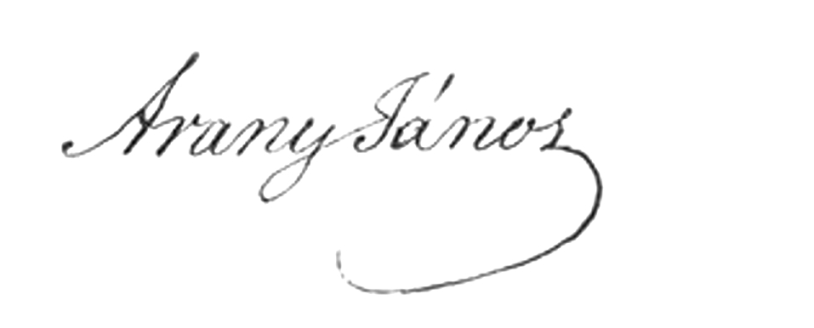 Arany János